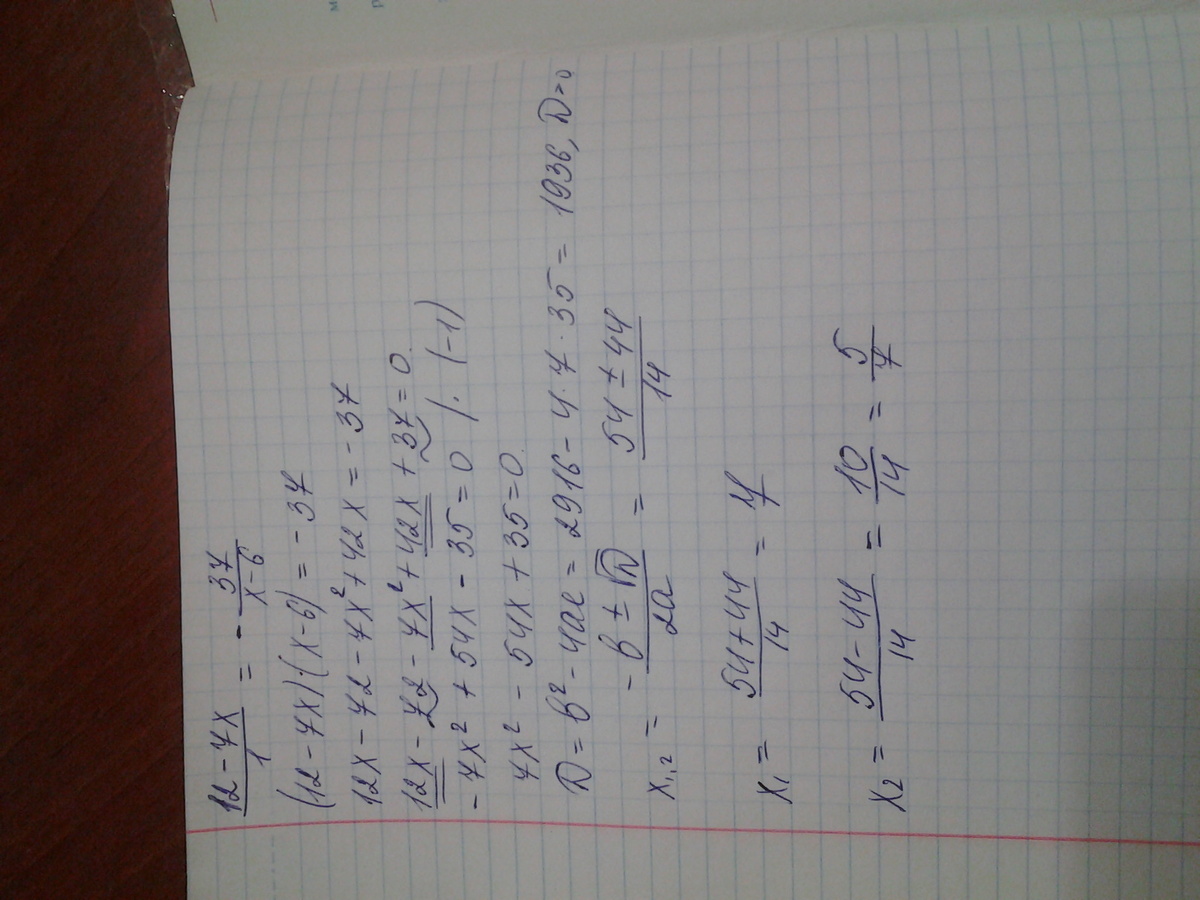 (12-7x)/1 = -37/(x-6)
(12-7x)·(x-6) = -37
12x-72-7x²+42x = -37
12x-72-7x²+42x+37=0.
-7x²+54x-35=0 /·(-1)
7x²-54x+35=0.
D=b²-4ac=2916-4·7·35=1936, D>0
x₁,₂ = (-b±√D)/2a = (54±44)/14
x₁ = (54+44)/14 = 7
x₂ = (54-44)/14 = 10/14 = 5/7